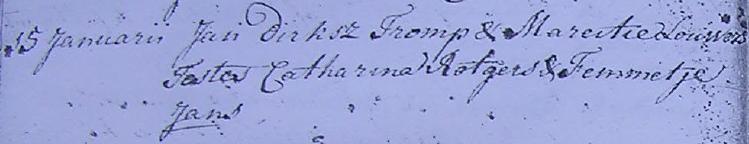 15 Januarii Jan Dirksz Tromp & Marritie Louwers
Testes Catharina Rotgers & Femmetje
Jans